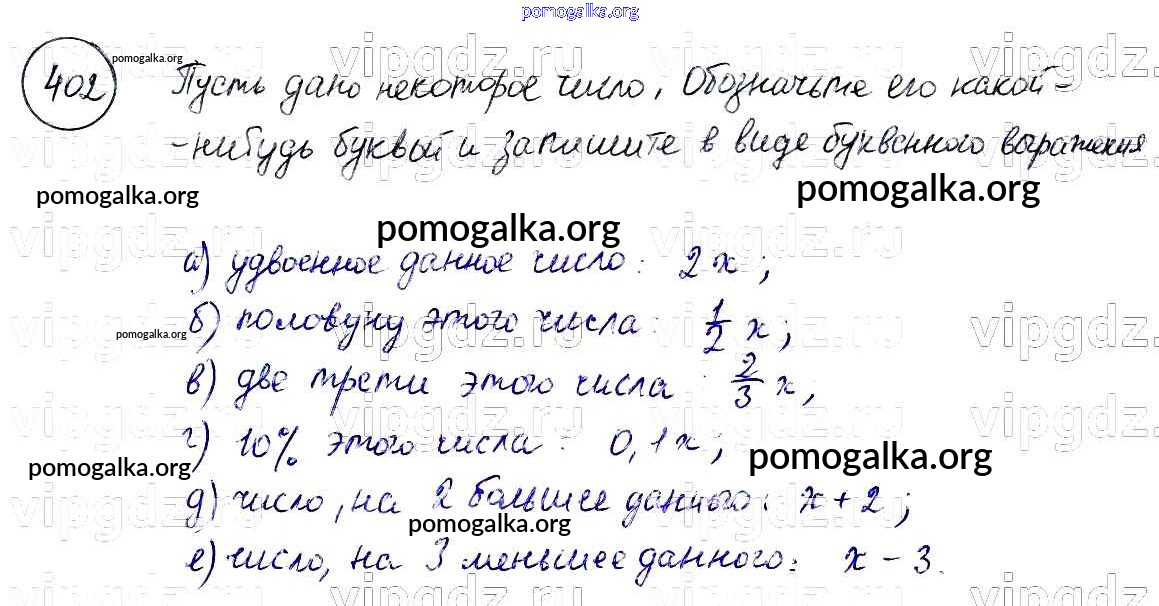 pomogalka.org
402 Пусть дано некоторое число, Обозначьте его какой-
-нибудь буквой и запишите в виде буквенного выражения
pomogalka.org
pomogalka.org
pomogalka.org
pomogalka.org
vipgdz.ru
vipgdz.ru
vipgdz.ru
а) удвоенное данное число: 2x;
б) половину этого числа: 1/2 x;
pomogalka.org
в) две трети этого числа: 2/3 x,
г) 10% этого числа: 0,1x;
pomogalka.org
pomogalka.org
д) число, на 2 большее данного: x + 2;
pomogalka.org
е) число, на 3 меньшее данного: x - 3.